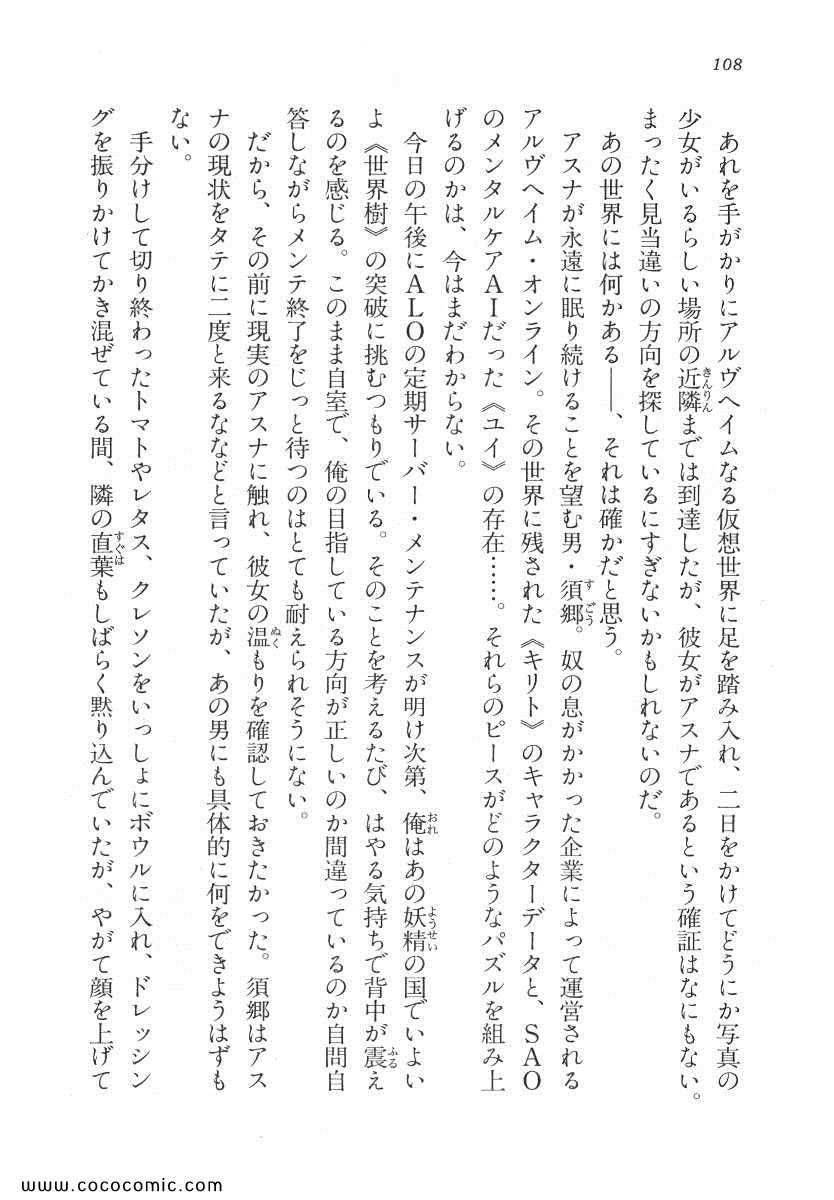 108
あれを手がかりにアルヴヘイムなる仮想世界に足を踏み入れ、二日をかけてどうにか写真の
少女がいるらしい場所の近隣きんりんまでは到達したが、彼女がアスナであるという確証はなにもない。
まったく見当違いの方向を探しているにすぎないかもしれないのだ。
あの世界には何かある――、それは確かだと思う。
アスナが永遠に眠り続けることを望む男・須郷すごう。奴の息がかかった企業によって運営される
アルヴヘイム・オンライン。その世界に残された《キリト》のキャラクターデータと、ＳＡＯ
のメンタルケアＡＩだった《ユイ》の存在……。それらのピースがどのようなパズルを組み上
げるのかは、今はまだわからない。
今日の午後にＡＬＯの定期サーバー・メンテナンスが明け次第、俺おれはあの妖精ようせいの国でいよい
よ《世界樹》の突破に挑むつもりでいる。そのことを考えるたび、はやる気持ちで背中が震ふるえ
るのを感じる。このまま自室で、俺の目指している方向が正しいのか間違っているのか自問自
答しながらメンテ終了をじっと待つのはとても耐えられそうにない。
だから、その前に現実のアスナに触れ、彼女の温ぬくもりを確認しておきたかった。須郷はアス
ナの現状をタテに二度と来るななどと言っていたが、あの男にも具体的に何をできようはずも
ない。
手分けして切り終わったトマトやレタス、クレソンをいっしょにボウルに入れ、ドレッシン
グを振りかけてかき混ぜている間、隣の直葉すぐはもしばらく黙り込んでいたが、やがて顔を上げて
www.cococomic.com